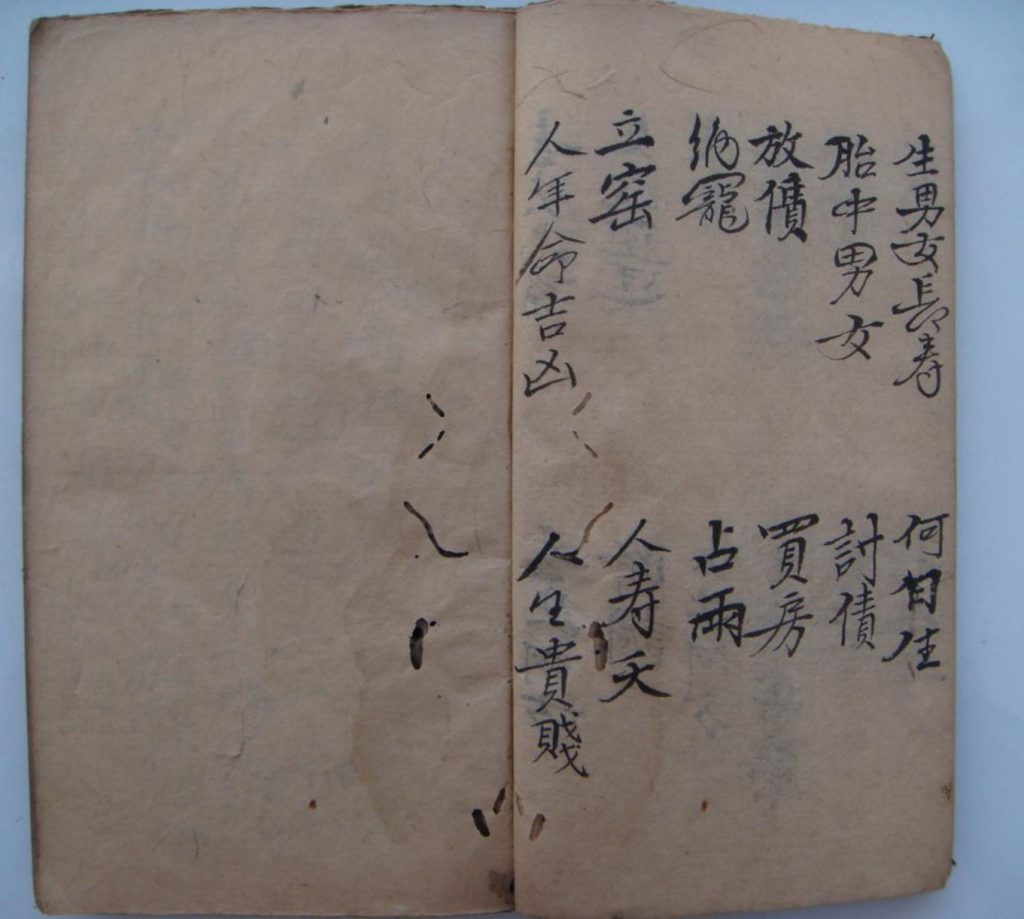 生男女長寿
何日生
胎中男女
討債
放債
買房
納寵
占雨
立窑
人寿夭
人年命吉凶
人生貴賤